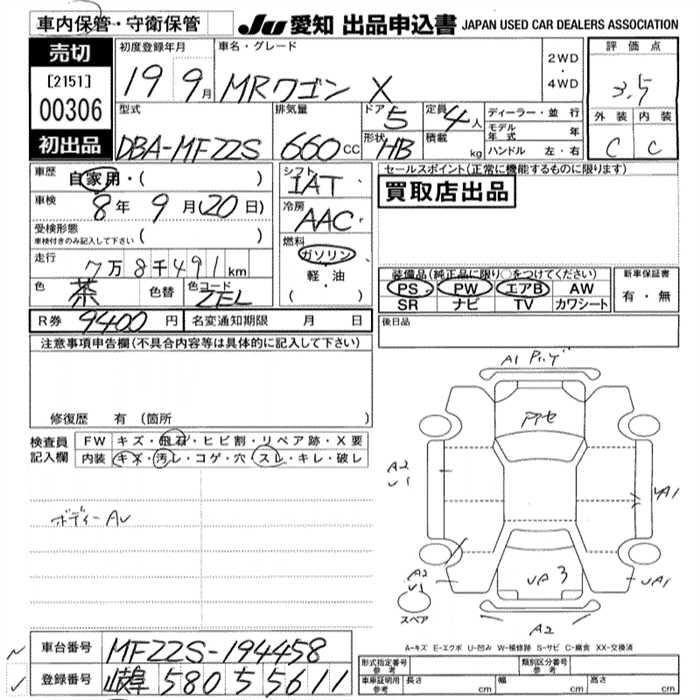 車内保管・守衛保管
JU 愛知 出品申込書 JAPAN USED CAR DEALERS ASSOCIATION
売切
[2151]
00306
初出品
初度登録年月
19 9月
車名・グレード
MRワゴン X
2WD
・
4WD
評価点
3.5
外装 内装
C C
型式
DBA-MF22S
排気量
660cc
ドア 5
形状 HB
定員 4人
積載 kg
ディーラー・並行
モデル年式 年
ハンドル 左・右
車歴
自家用・( )
車検
8年 9月(20日)
受検形態
車検付きのみ記入して下さい ( )
走行
7万8千491km
色 茶 色替 色コード ZEL
シフト
IAT
冷房
AAC
燃料
ガソリン
・
軽・油
( )
セールスポイント(正常に機能するものに限ります)
買取店出品
装備品(純正品に限り○をつけてください)
PS PW エアB AW
SR ナビ TV カワシート
新車保証書
有・無
R券 9400円 名変通知期限 月 日
後日品
注意事項申告欄(不具合内容等は具体的に記入して下さい)
修復歴 有(箇所
検査員
記入欄
FW キズ・飛石・ヒビ割・リペア跡・X要
内装 キズ・汚レ・コゲ・穴・スレ・キレ・破レ
A1
A2
U1
A1
A2
U1
UA1
UA3
A2
スペア
A-キズ E-エクボ U-凹み W-補修跡 S-サビ C-腐食 XX-交換済
車台番号 MF22S-194458
登録番号 岐阜 580 5 5611
形式指定番号
参考
類別区分番号
参考
車庫証明用
参考
長さ cm
幅 cm
高さ cm